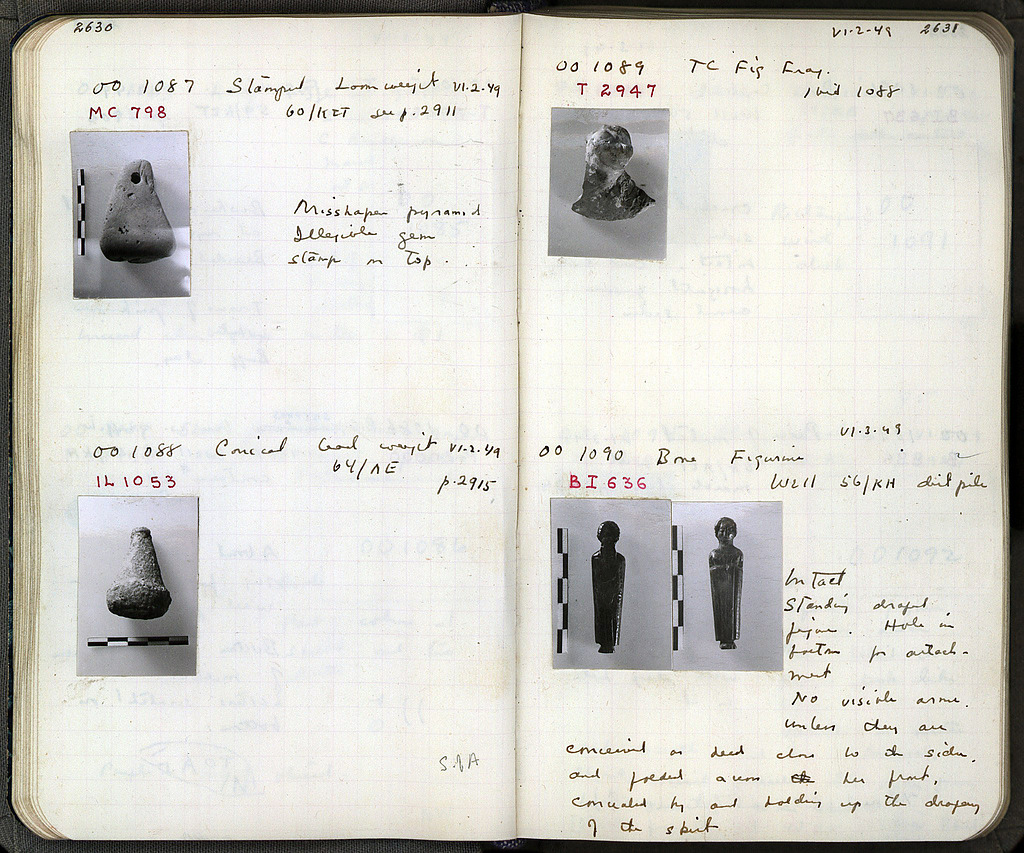 2630
OO 1087 Stamped Loomweight VI-2-49
MC 798 60/KET see p. 2911
Misshapen pyramid
Illegible gem
stamp on top.
OO 1088 Conical lead weight VI-2-49
64/ΛΕ
IL 1053 p. 2915
S.P.A
VI-2-49 2631
OO 1089 TC Fig Frag.
T 2947 ibid 1088
VI-3-49
OO 1090 Bone Figurine
BI 636 Well 56/KH dirt pile
Intact
Standing draped
figure. Hole in
bottom for attach-
ment
No visible arms.
unless they are
conceived as dead close to the sides,
and folded across her front,
concealed by and holding up the drapery
of the skirt